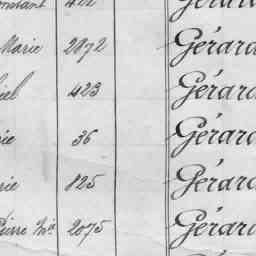 422 Gérard
Marie 2072 Gérard
423 Gérard
36 Gérard
825 Gérard
Pierre Nic 2075 Gérard